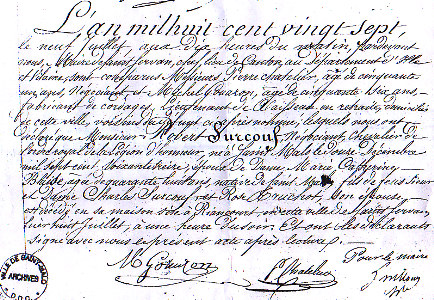 L'an mil huit cent vingt sept,
le neuf Juillet, aux dix heures du matin, Pardevant
nous, Maire de Saint Servan, chef lieu de Canton, au Département d'Ille
et Vilaine, sont comparus Messieurs Pierre chatelier, âgé de cinquante
un ans, Négociant, et Michel Gouazon, âgé de cinquante six ans,
fabricant de cordages, Lieutenant de Vaisseau en retraite, domiciliés
de cette ville, voisins du défunt cy après nommé; lesquels nous ont
déclaré que Monsieur Robert Surcouf, Négociant, Chevalier de
l'ordre royal de la Légion d'honneur, né à Saint Malo le douze Décembre
mil sept cent soixante treize, Epoux de Dame Marie Catherine
Blaize, âgée de quarante huit ans, native de Saint Malo, fils de feus Sieur
et Dame Charles Surcouf et Rose Truchot, son épouse,
est décédé en sa maison sise à Riancourt, en cette ville de Saint Servan,
hier huit Juillet, à une heure du soir. Et ont les déclarants
signé avec nous le présent acte après lecture.
Pour le maire
M Gouazon
P Chatelier
VILLE DE SAINT-MALO
ARCHIVES